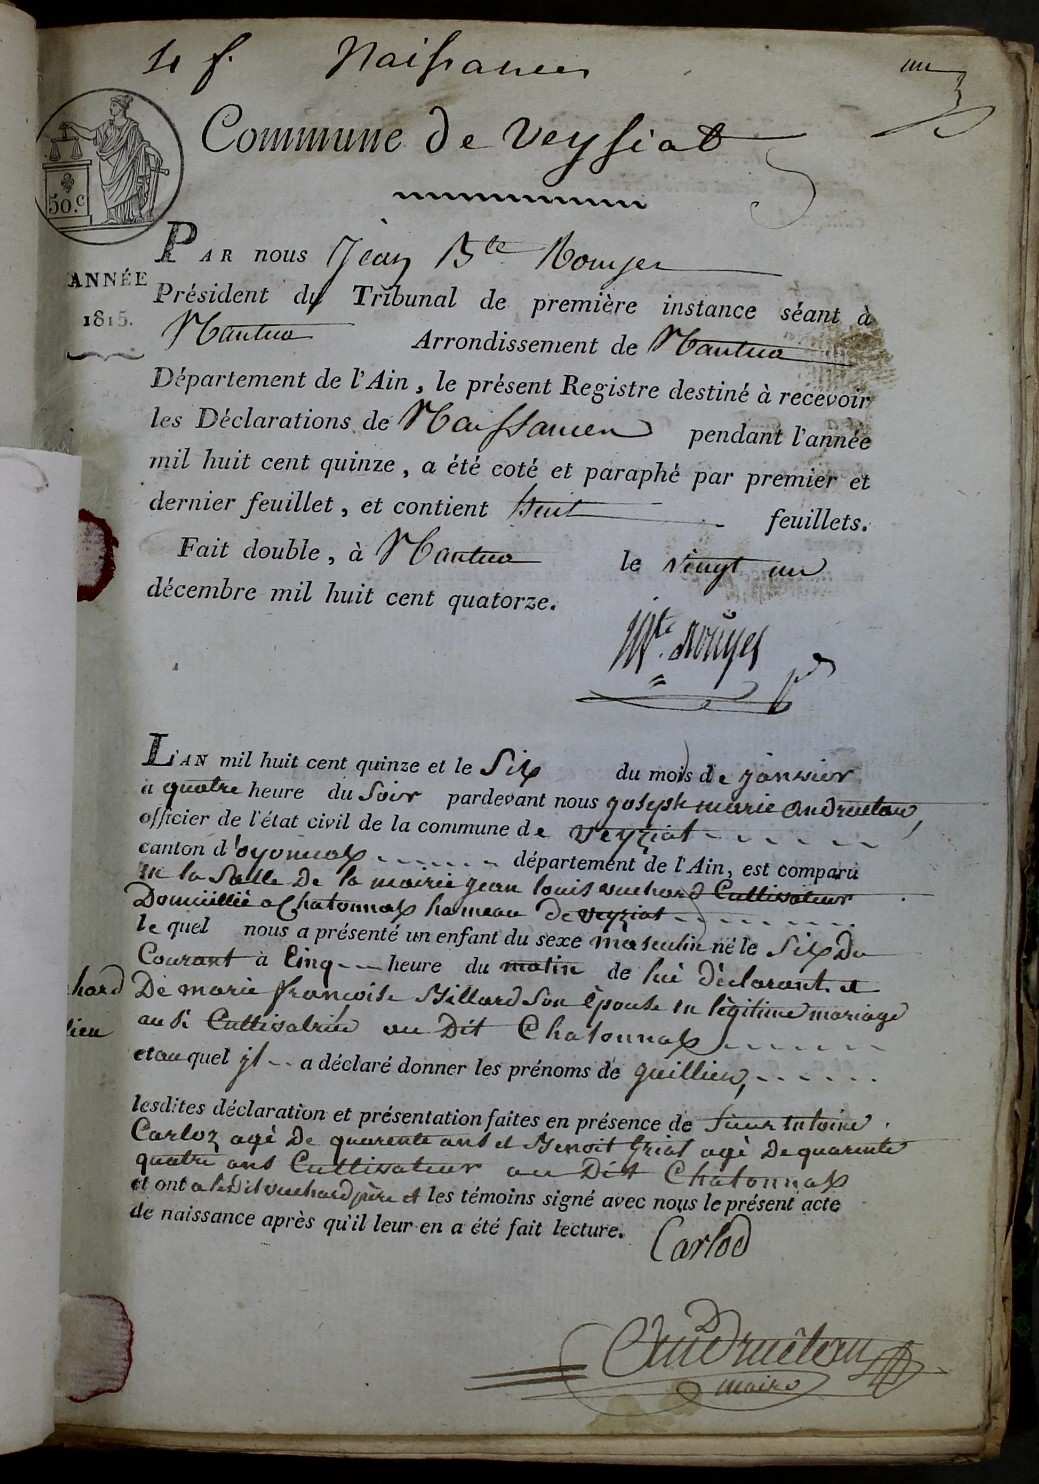 4 f. Naissances
un
Commune de Veysiat
50.c
ANNÉE
1815.
PAR nous Jean Bte Rouyer
Président du Tribunal de première instance séant à
Nantua Arrondissement de Nantua
Département de l'Ain, le présent Registre destiné à recevoir
les Déclarations de Naissances pendant l'année
mil huit cent quinze, a été coté et paraphé par premier et
dernier feuillet, et contient huit feuillets.
Fait double, à Nantua le vingt un
décembre mil huit cent quatorze.
Bte. Rouyer
L'AN mil huit cent quinze et le Six du mois de janvier
a quatre heure du Soir pardevant nous joseph marie andruetan,
officier de l'état civil de la commune de veyziat
canton d'oyonnax département de l'Ain, est comparu
en la Salle De la mairie jean louis vuchard Cultivateur
Domicillié a Chatonnax hameau de veyziat
le quel nous a présenté un enfant du sexe masculin né le Six Du
Courant à Cinq heure du matin de lui déclarant et
hard De marie françoise Billard Son Epouse en légitime mariage
lieu au Si Cultivatrice au Dit Chatonnax
et au quel il a déclaré donner les prénoms de guillieu,
lesdites déclaration et présentation faites en présence de Sieur antoine
Carloz agé De quarente ans et Benoit grial agé De quarente
quatre ans Cultivateur au Dit Chatonnax
et ont a le Dit vuchard père et les témoins signé avec nous le présent acte
de naissance après qu'il leur en a été fait lecture.
Carlod
Andruétan
maire